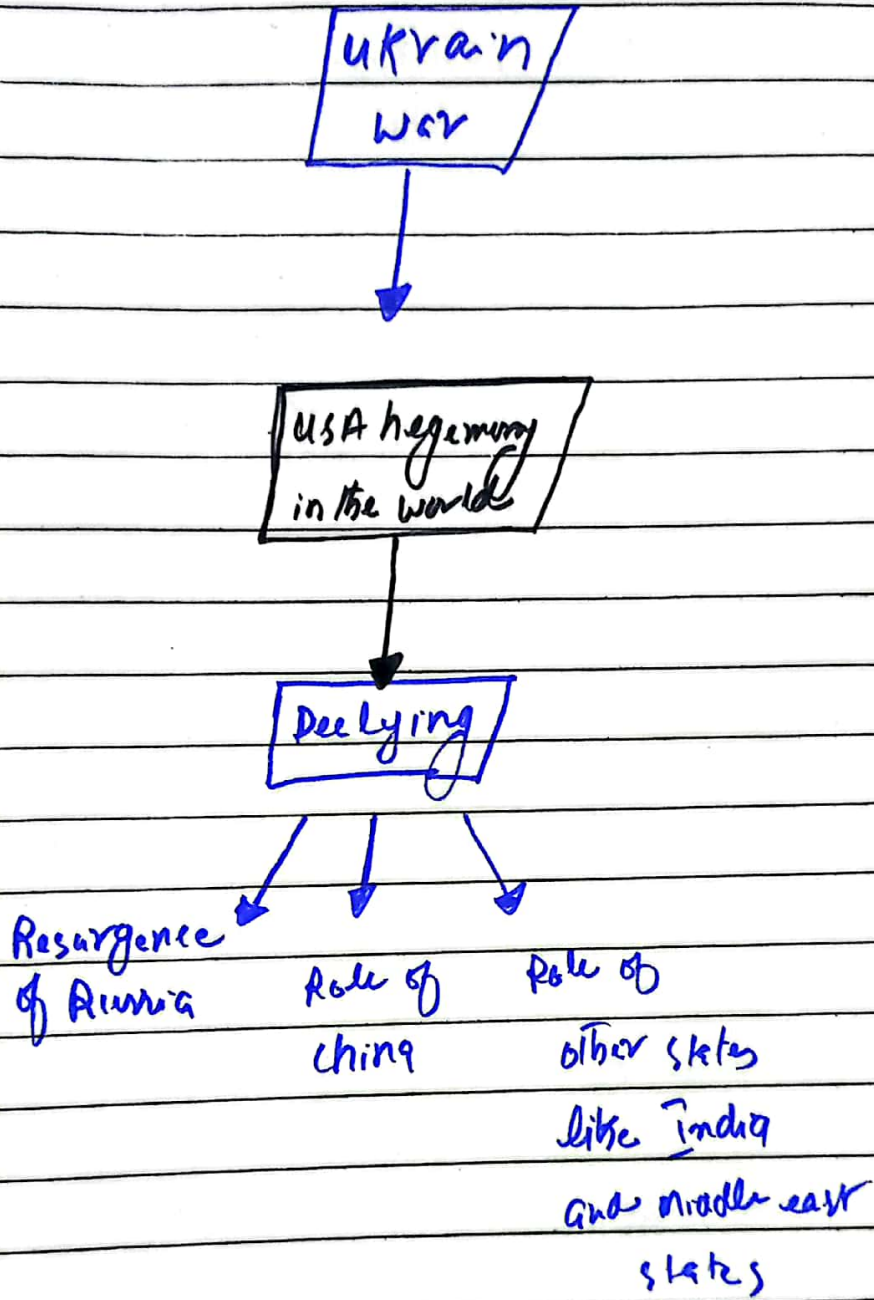 Ukrain
war
USA hegemony
in the world
Deelying
Resurgence
of Russia
Role of
china
Role of
other states
like India
and middle east
states